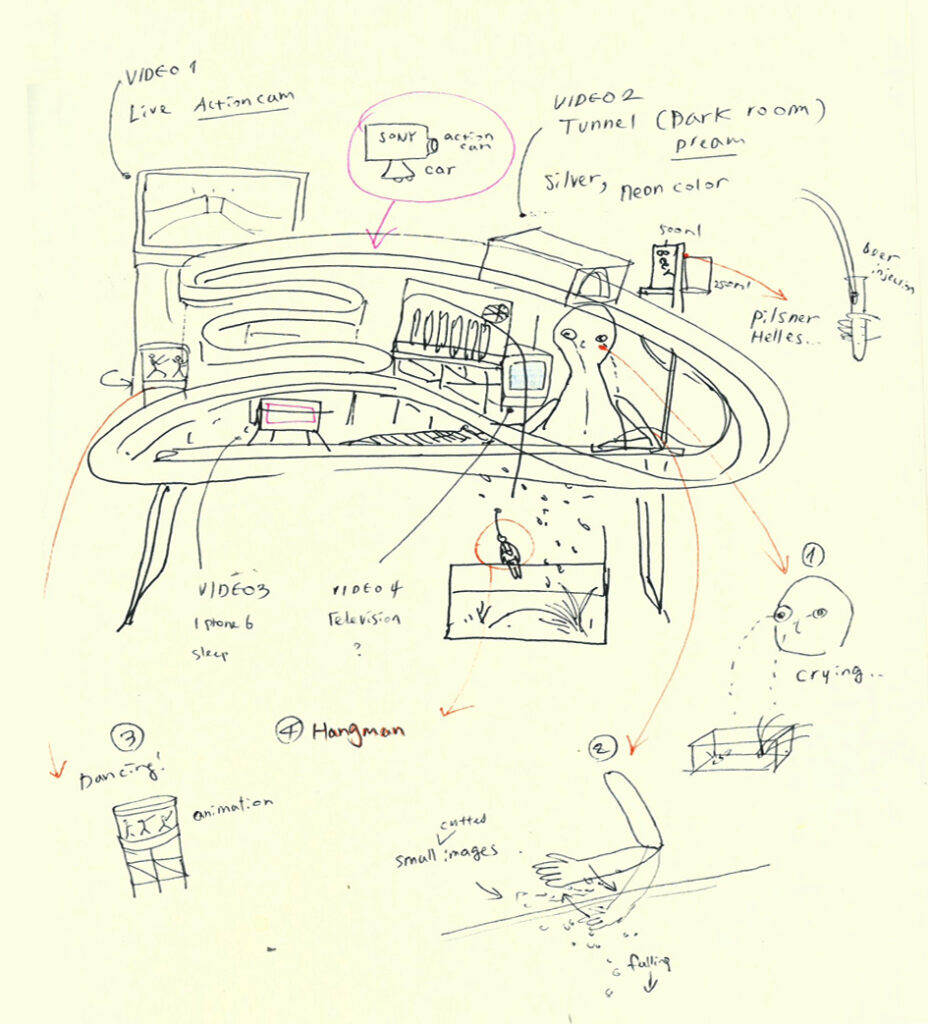 VIDEO 1
Live Actioncam
SONY
action
cam
car
VIDEO 2
Tunnel (Dark room)
Dream
Silver, neon color
500ml
Beer
250ml
Beer
injection
Pilsner
Helles...
VIDEO3
iphone 6
sleep
VIDEO4
Television
?
①
crying...
②
cutted
small images
falling
③
Dancing!
animation
④ Hangman